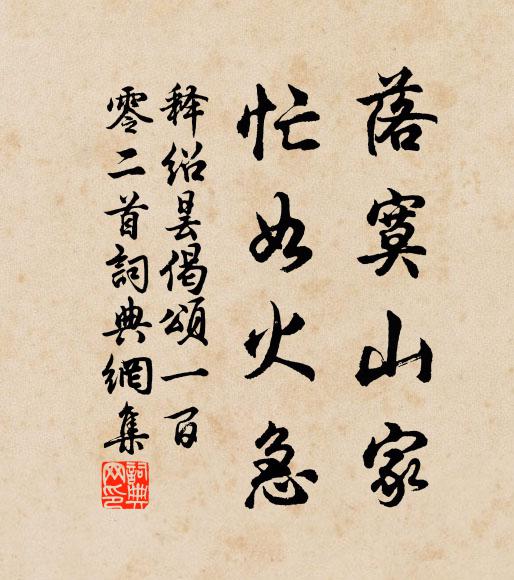 落寞山家
忙如火急
释绍昙偈颂一百
零二首詞典網集
詞典网印